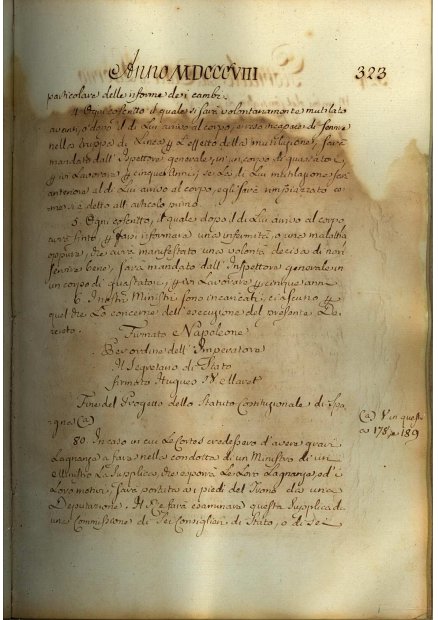 Anno MDCCCVIII 323
particolare delle riforme dei cambi.
4. Ogni coscritto il quale si sarà volontariamente mutilato
avanti, o dopo il di Lui arrivo al corpo, e reso incapace di servire
nella truppa di Linea per l'effetto della mutilazione, sarà
mandato dall'Ispettore generale in un corpo di guastatori,
per ivi Lavorare per cinque Anni; se La di Lui mutilazione sarà
anteriore al di Lui arrivo al corpo, egli sarà rimpiazzato co-
me si è detto all'articolo primo.
5. Ogni coscritto, il quale dopo il di Lui arrivo al corpo
avrà finto per farsi riformare una infermità, o una malattia
oppure, che avrà manifestato una volontà decisa di non
servire bene, sarà mandato dall'Inspettore generale in
un corpo di guastatori, per ivi Lavorare per cinque anni
6. I nostri Ministri sono incaricati ciascuno per
quel che Lo concerne dell'esecuzione del presente De-
creto.
Firmato Napoleone
Per ordine dell'Imperatore
Il Segretario di Stato
firmato Hugues B Maret
Fine del Progetto dello Statuto Costituzionale di Spa-
gna (a)
(a) V in questo
a 178, e 189
80. In caso in cui Le Cortes credessero d'avere gravi
Lagnanze a fare nella condotta di un Ministro di un
e Ministro La Supplica, che esporrà Le Loro Lagnanze, ed i
Loro motivi, sarà portata ai piedi del Trono da una
Deputazione. Il Re farà esaminare questa supplica da
una Commissione di Sei Consiglieri di Stato, o di sei